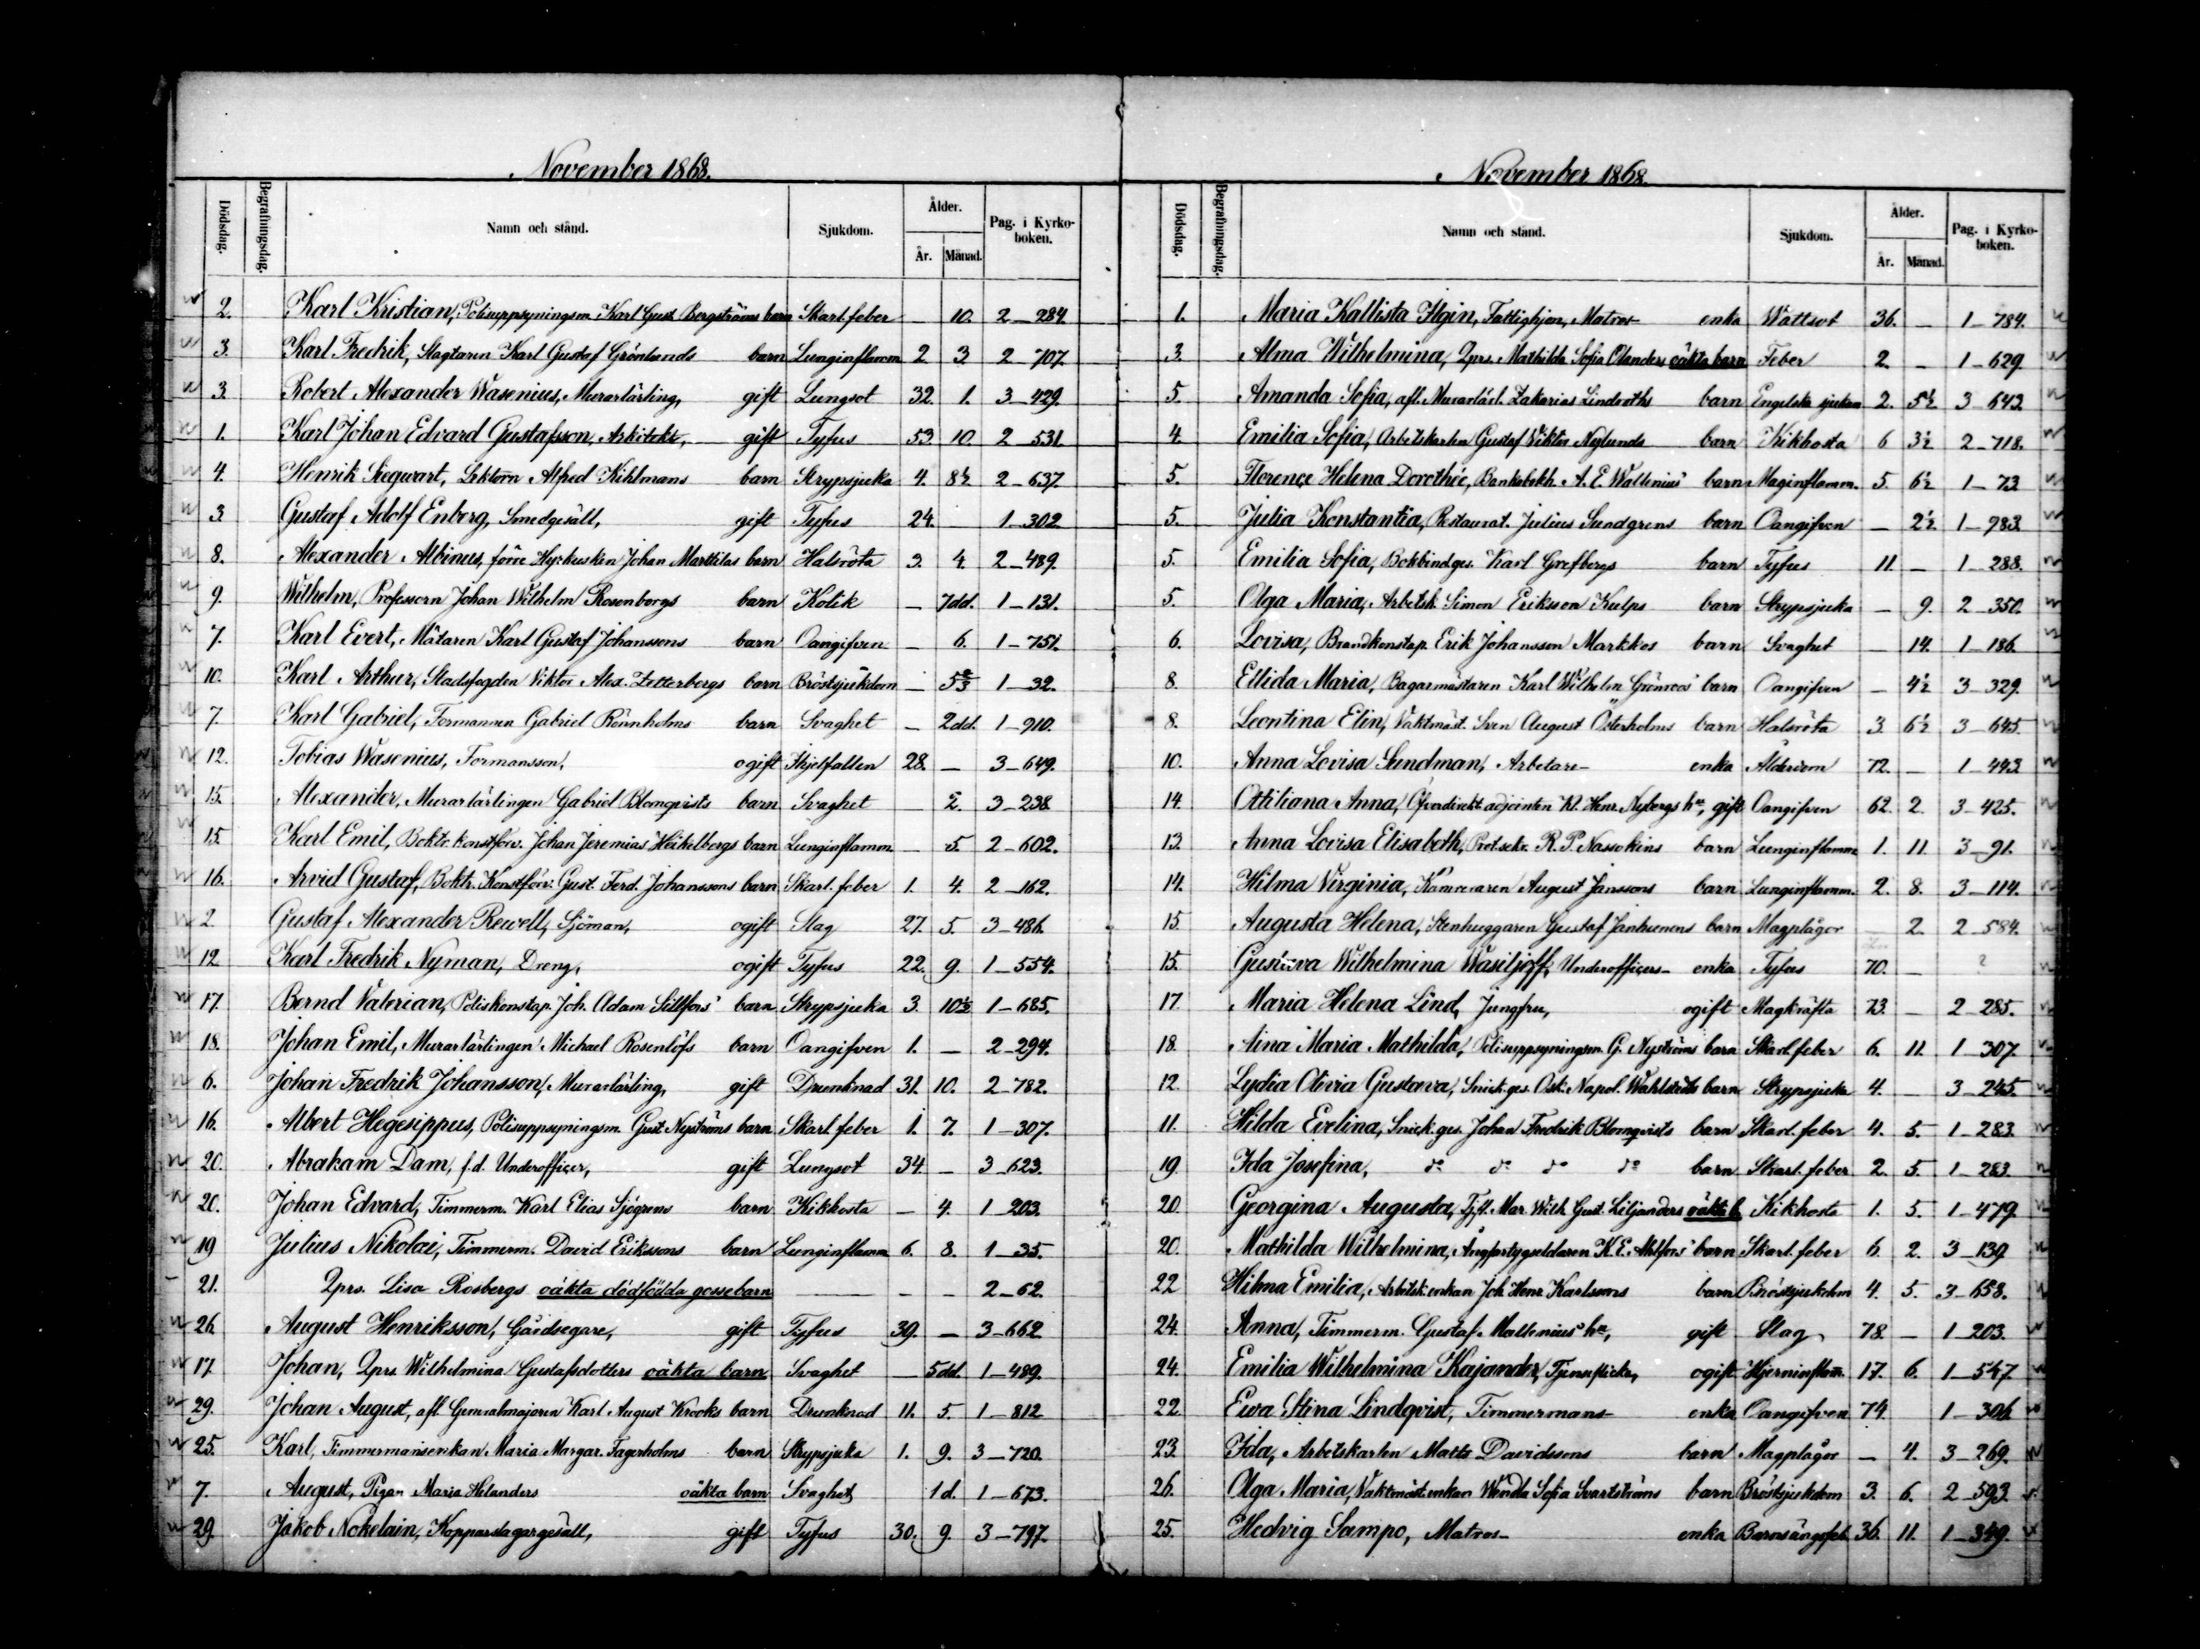 November 1868.
Dödsdag. Begrafningsdag. Namn och stånd. Sjukdom. Ålder. År. Månad. Pag. i Kyrko-boken.
2. Karl Kristian, Polisuppsyningsm. Karl Gust. Bergströms barn Skarl. feber 10. 2—284.
3. Karl Fredrik, Slagtaren Karl Gustaf Grönlunds barn Lunginflamm. 2 3 2—707.
3. Robert Alexander Wasenius, Murarlärling, gift Lungsot 32. 1. 3—429.
1. Karl Johan Edvard Gustafsson, Arkitekt, gift Tyfus 53. 10. 2—531.
4. Henrik Siegwart, Lektorn Alfred Kihlmans barn Strypsjuka 4. 8½ 2—637.
3. Gustaf Adolf Enberg, Smedgesäll, gift Tyfus 24. 1—302
8. Alexander Albinus, förre Hyrkusken Johan Marttilas barn Halsröta 3. 4. 2—489.
9. Wilhelm, Professorn Johan Wilhelm Rosenborgs barn Kolik — 7dd. 1—131.
7. Karl Evert, Mätaren Karl Gustaf Johanssons barn Oangifven — 6. 1—751.
10. Karl Arthur, Stadsfogden Viktor Alex. Zetterbergs barn Bröstsjukdom — 5⅔ 1—32.
7. Karl Gabriel, Formannen Gabriel Rönnholms barn Svaghet — 2dd. 1—910.
12. Tobias Wasenius, Formansson, ogift Ihjelfallen 28. — 3—649.
15. Alexander, Murarlärlingen Gabriel Blomqvists barn Svaghet 2. 3—238
15. Karl Emil, Boktr. konstförv. Johan Jeremias Heikelbergs barn Lunginflamm. — 5. 2—602.
16. Arvid Gustaf, Boktr. Konstförv. Gust. Ferd. Johanssons barn Skarl. feber 1. 4. 2—162.
2. Gustaf Alexander Rewell, Sjöman, ogift Slag 27. 5. 3—486.
12. Karl Fredrik Nyman, Dreng, ogift Tyfus 22. 9. 1—554.
17. Bernd Valerian, Poliskonstap. Joh. Adam Sillfors' barn Strypsjuka 3. 10½ 1—685.
18. Johan Emil, Murarlärlingen Michael Rosenlöfs barn Oangifven 1. — 2—294.
6. Johan Fredrik Johansson, Murarlärling, gift Drunknad 31. 10. 2—782.
16. Albert Hegesippus, Polisuppsyningsm. Gust. Nyströms barn Skarl. feber 1. 7. 1—307.
20. Abraham Dam, f.d. Underofficer, gift Lungsot 34. — 3—623.
20. Johan Edvard, Timmerm. Karl Elias Sjögrens barn Kikhosta — 4. 1—203.
19 Julius Nikolai, Timmerm. David Erikssons barn Lunginflamm 6. 8. 1—35.
21. Qprs. Lisa Rosbergs oäkta dödfödda gossebarn — — — 2—62.
26. August Henriksson, Gårdsegare, gift Tyfus 39. — 3—662
17. Johan, Qprs. Wilhelmina Gustafsdotters oäkta barn Svaghet — 5dd. 1—489.
29. Johan August, afl. Generalmajoren Karl August Krooks barn Drunknad 11. 5. 1—812
25. Karl, Timmermansenkan Maria Margar. Fagerholms barn Strypsjuka 1. 9. 3—720.
7. August, Pigan Maria Helanders oäkta barn Svaghet 1 d. 1—673.
29. Jakob Nokelain, Kopparslagargesäll, gift Tyfus 30. 9. 3—797.
November 1868.
Dödsdag. Begrafningsdag. Namn och stånd. Sjukdom. Ålder. År. Månad. Pag. i Kyrko-boken.
1. Maria Kallista Ilgin, Fattighjon, Matros- enka Wattsot 36. — 1—784.
3. Alma Wilhelmina, Qprs. Mathilda Sofia Olanders oäkta barn Feber 2. — 1—629.
5. Amanda Sofia, afl. Murarlärl. Zakarias Lindroths barn Engelska sjukan 2. 5½ 3—643.
4. Emilia Sofia, Arbetskarlen Gustaf Viktor Nylunds barn Kikhosta 6 3½ 2—718.
5. Florençe Helena Dorothée, Banksbokh. A. E. Wallenius' barn Maginflamm. 5. 6½ 1—73
5. Julia Konstantia, Restaurat. Julius Sundgrens barn Oangifven — 2½ 1—983.
5. Emilia Sofia, Bokbindges. Karl Grefbergs barn Tyfus 11. — 1—288.
5. Olga Maria, Arbetsk. Simon Eriksson Kulps barn Strypsjuka — 9. 2—350.
6. Lovisa, Brandkonstap. Erik Johansson Markkos barn Svaghet — 14. 1—186.
8. Ellida Maria, Bagarmästaren Karl Wilhelm Grönroos' barn Oangifven — 4½ 3—329.
8. Leontina Elin, Vaktmäst. Sven August Österholms barn Halsröta 3. 6½ 3—645.
10. Anna Lovisa Sundman, Arbetare- enka Ålderdom 72. — 1—443.
14. Ottiliana Anna, Öfverdirekt. adjointen Kl. Henr. Nybergs h:u, gift Oangifven 62. 2. 3—425.
13. Anna Lovisa Elisabeth, Prot.sekr. R. P. Nassokins barn Lunginflamm 1. 11. 3—91.
14. Hilma Virginia, Kamreraren August Janssons barn Lunginflamm. 2. 8. 3—114.
15. Augusta Helena, Stenhuggaren Gustaf Janhunens barn Magplågor — 2. 2—584.
15. Gustava Wilhelmina Wasiljoff, Underofficers- enka Tyfus 70. — ?
17. Maria Helena Lind, Jungfru, ogift Magkräfta 73. — 2—285.
18. Aina Maria Mathilda, Polisuppsyningsm. G. Nyströms barn Skarl. feber 6. 11. 1—307.
12. Lydia Olivia Gustava, Snick. ges. Osk. Napol. Wahlstedts barn Strypsjuka 4. — 3—245.
11. Hilda Evelina, Snick. ges. Johan Fredrik Blomqvists barn Skarl. feber 4. 5. 1—283.
19. Ida Josefina, d:o d:o d:o d:o barn Skarl. feber 2. 5. 1—283.
20. Georgina Augusta, Tjfl. Mar. Wilh. Gust. Liljanders oäkta b. Kikhosta 1. 5. 1—479.
20. Mathilda Wilhelmina, Ångfartygseldaren K. E. Ahlfors' barn Skarl. feber 6. 2. 3—139
22 Hilma Emilia, Arbetsk. enkan Joh. Henr. Karlssons barn Bröstsjukdom 4. 5. 3—658.
24. Anna, Timmerm. Gustaf Mallenius' h:u, gift Slag 78. — 1—203.
24. Emilia Wilhelmina Kajander, Tjensteflicka, ogift Hjerninflam. 17. 6. 1—547.
22. Ewa Stina Lindqvist, Timmermans- enka Oangifven 74. 1—306.
23. Ida, Arbetskarlen Matts Davidssons barn Magplågor — 4. 3—269.
26. Olga Maria, Vaktmäst. enkan Wendla Sofia Svartströms barn Bröstsjukdom 3. 6. 2—593.
25. Hedvig Sampo, Matros- enka Barnsängsfeb. 36. 11. 1—349.